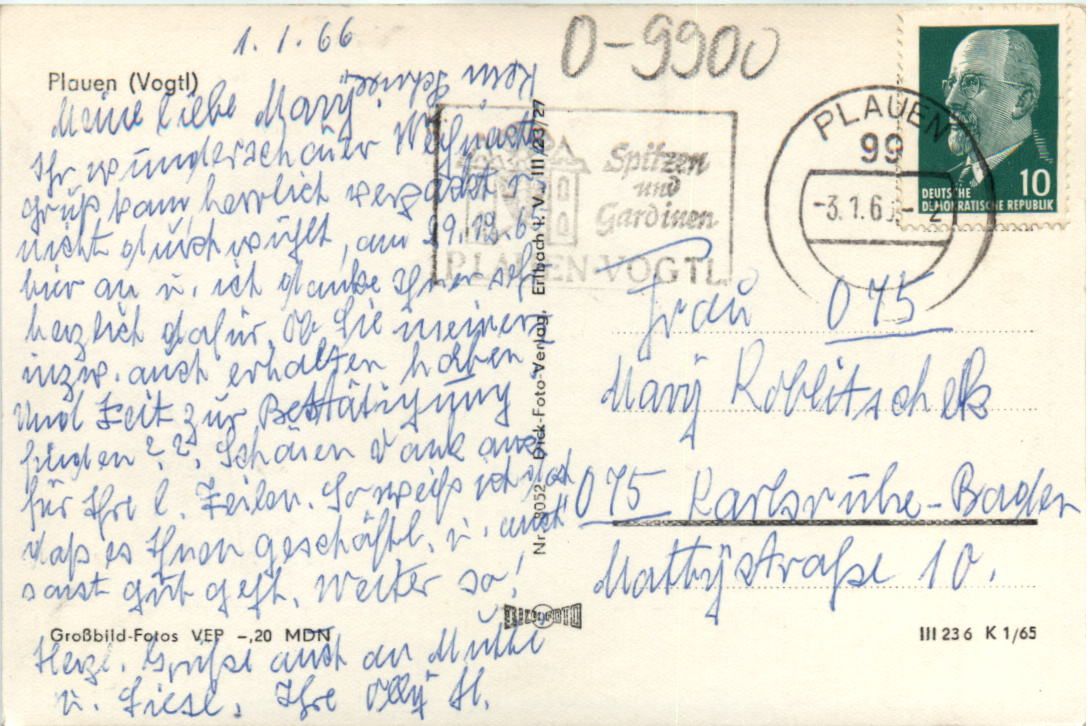 1.1.66
O-9900
Plauen (Vogtl)
Kein Schnee!
Meine liebe Mary!
Ihr wunderschöner Weihnachts-
gruß kam herrlich verpackt u.
nicht durchwühlt, am 29.12.65
hier an u. ich danke Ihnen sehr
herzlich dafür. Ob Sie meinen
inzw. auch erhalten haben
und Zeit zur Bestätigung
finden?? Schönen Dank auch
für Ihre l. Zeilen. So weiß ich doch
daß es Ihnen geschäftl. u. auch
sonst gut geht. Weiter so!
Großbild-Fotos VEP -,20 MDN
Herzl. Grüße auch an Mutti
u. Liesl, Ihre Olly H.
Nr. 8052 Dick-Foto-Verlag, Erlbach i. V. III 23/27
Spitzen
und
Gardinen
PLAUEN-VOGTL
PLAUEN
99
-3.1.66-
DEUTSCHE
DEMOKRATISCHE REPUBLIK
10
Frau 075
Mary Koblitschek
075 Karlsruhe-Baden
Mathystraße 10.
III 23 6 K 1/65